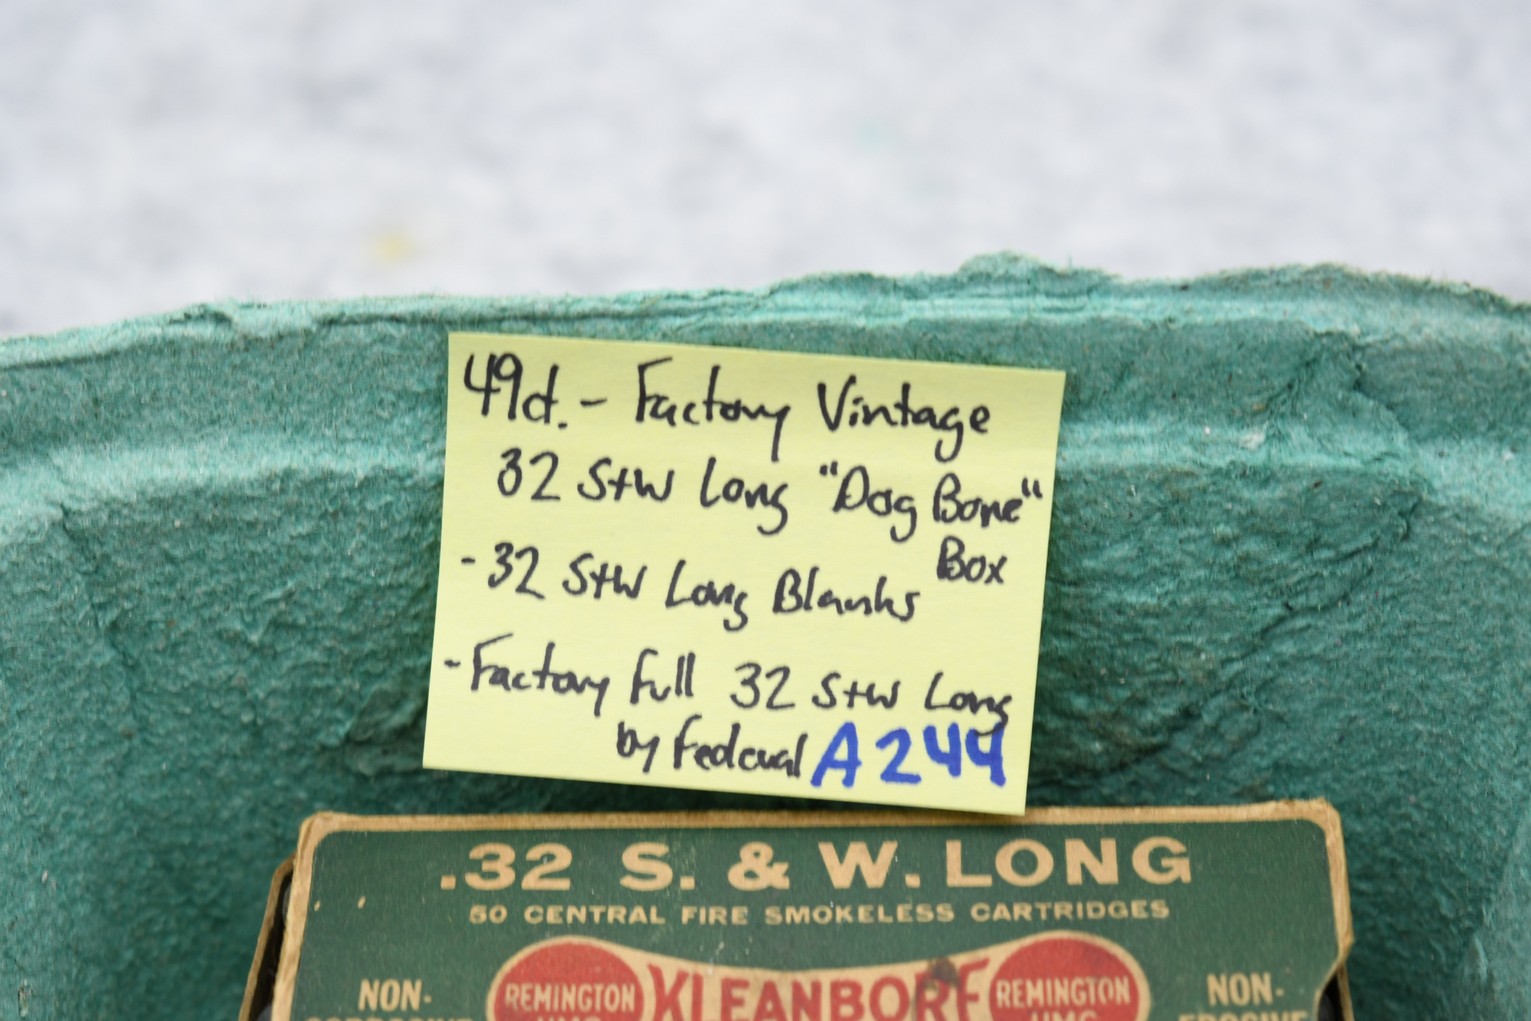 49ct. - Factory Vintage
32 S+W Long "Dog Bone"
Box
- 32 S+W Long Blanks
- Factory Full 32 S+W Long
by Federal A244
.32 S. & W. LONG
50 CENTRAL FIRE SMOKELESS CARTRIDGES
NON- REMINGTON KLEANBORE REMINGTON NON-
CORROSIVE UMC UMC EROSIVE